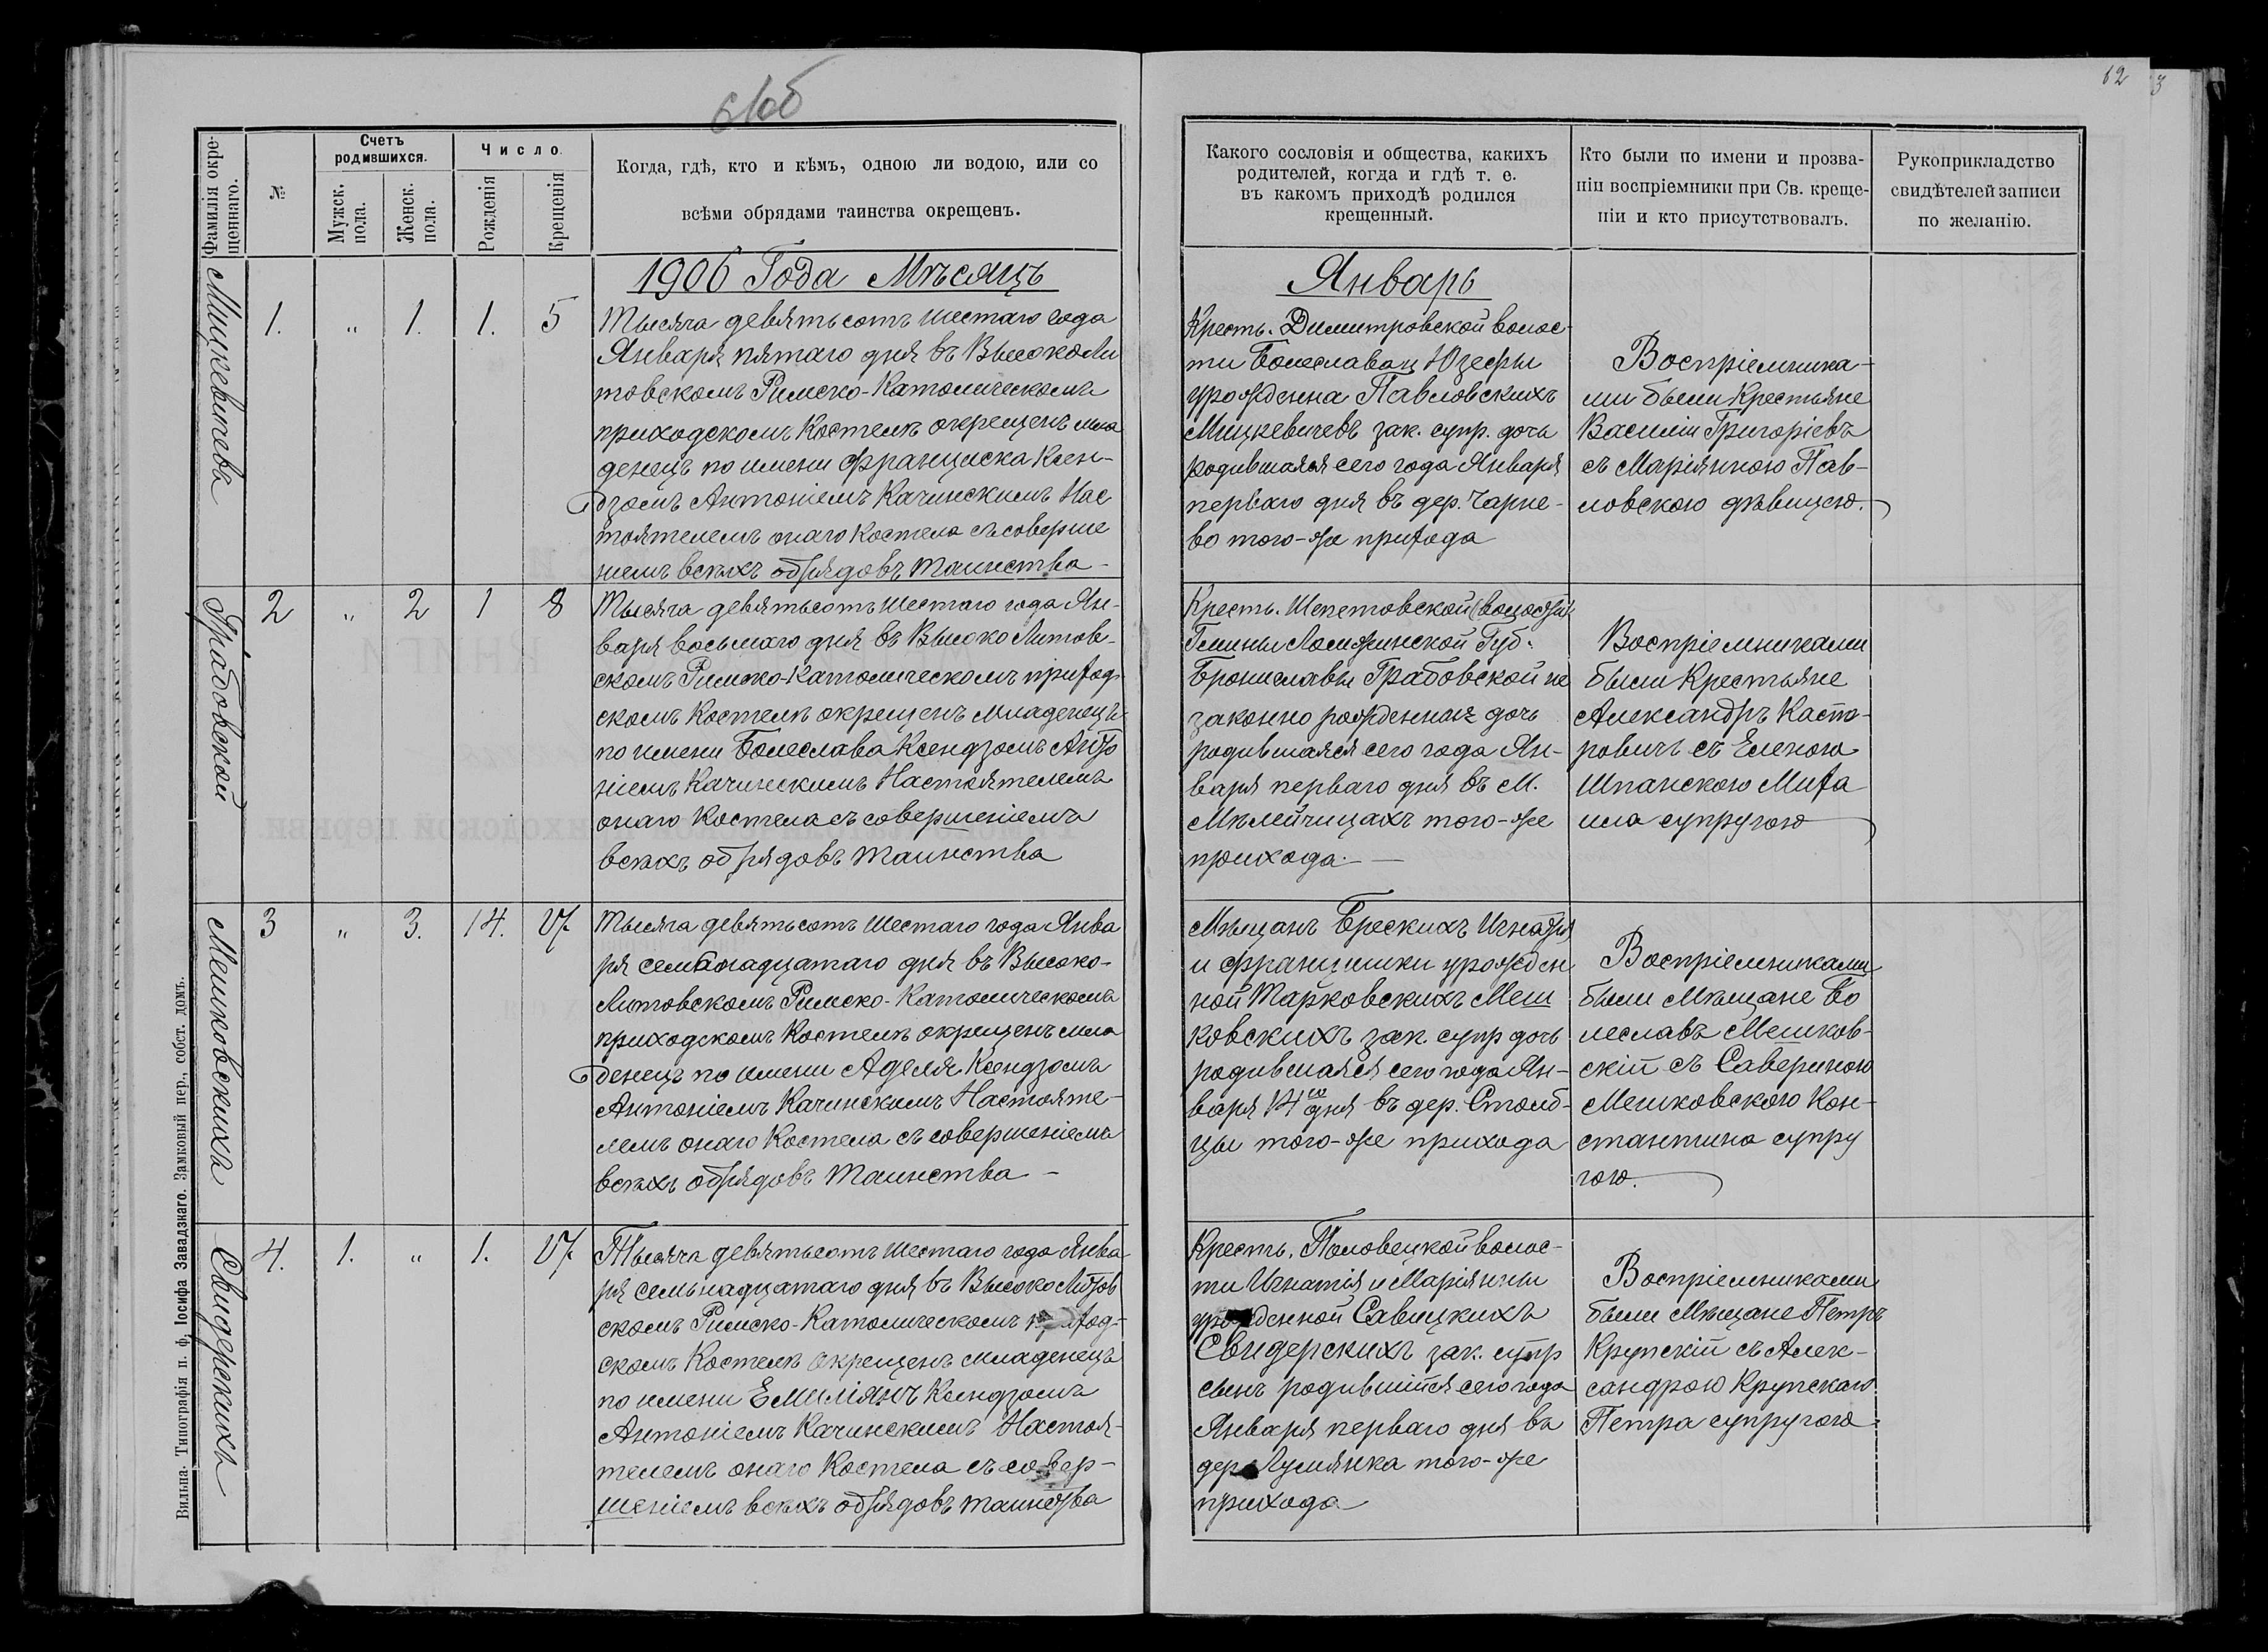 62
3
Фамилія окре-
щеннаго.
№
Счетъ
родившихся.
Мужск.
пола.
Женск.
пола.
Число.
Рожденія
Крещенія
Когда, гдѣ, кто и кѣмъ, одною ли водою, или со
всѣми обрядами таинства окрещенъ.
Какого сословія и общества, какихъ
родителей, когда и гдѣ т. е.
въ какомъ приходѣ родился
крещенный.
Кто были по имени и прозва-
ніи воспріемники при Св. креще-
ніи и кто присутствовалъ.
Рукоприкладство
свидѣтелей записи
по желанію.
1906 Года Мѣсяцъ
Январь
Мицкевичевъ
1. „ 1. 1. 5
Тысяча девятьсотъ шестаго года
Января пятаго дня въ Высоколи
товскомъ Римско-Католическомъ
приходскомъ Костелѣ окрещенъ мла
денецъ по имени Франциска Ксен-
дзомъ Антоніемъ Качинскимъ Нас
тоятелемъ онаго Костела съ соверше
ніемъ всѣхъ обрядовъ таинства-
Кресть. Димитровской волос-
ти Болеслава и Юзефы
урожденна Павловскихъ
Мицкевичевъ зак. супр. дочь
родившаяся сего года Января
перваго дня въ дер. Чарне-
во того-же прихода
Воспріемника-
ми были Крестьяне
Василій Григоріевъ
съ Маріянною Пав-
ловскою дѣвицею.
Грабовской
2 „ 2 1 8
Тысяча девятьсотъ шестаго года Ян-
варя восьмаго дня въ Высоко Литов-
скомъ Римско-Католическомъ приход-
скомъ Костелѣ окрещенъ младенецъ
по имени Болеслава Ксендзомъ Анто
ніемъ Качинскимъ Настоятелемъ
онаго Костела съ совершеніемъ
всѣхъ обрядовъ таинства
Кресть. Шепетовской (волости)
Гмины Ломжинской Губ.
Брониславы Грабовской не
законно рожденная дочь
родившаяся сего года Ян-
варя перваго дня въ М.
Мѣлейчицахъ того-же
прихода.-
Воспріемниками
были Крестьяне
Александръ Касп-
ровичъ съ Еленою
Шпанскою Миха
ила супругою
Мешковскихъ
3 „ 3. 14. 17.
Тысяча девятьсотъ шестаго года Янва
ря семьнадцатаго дня въ Высоко-
Литовскомъ Римско-Католическомъ
приходскомъ Костелѣ окрещенъ мла
денецъ по имени Аделя Ксендзомъ
Антоніемъ Качинскимъ Настояте-
лемъ онаго Костела съ совершеніемъ
всѣхъ обрядовъ таинства-
Мѣщанъ Брескихъ Игнатія
и Францишки урожден
ной Марковскихъ Меш
ковскихъ зак. супр дочь
родившаяся сего года Ян-
варя 14го дня въ дер. Столб-
цы того-же прихода
Воспріемниками
были Мѣщане Бо
леславъ Мешков-
скій съ Савериною
Мешковскою Кон-
стантина супру
гою.
Свидерскихъ
4. 1. „ 1. 17.
Тысяча девятьсотъ шестаго года Янва
ря семьнадцатаго дня въ Высоко Литов
скомъ Римско-Католическомъ приход-
скомъ Костелѣ окрещенъ младенецъ
по имени Емиліянъ Ксендзомъ
Антоніемъ Качинскимъ Настоя-
телемъ онаго Костела съ совер-
шеніемъ всѣхъ обрядовъ таинства
Кресть. Половецкой волос-
ти Игнатія и Маріянны
урожденной Савицкихъ
Свидерскихъ зак. супр
сынъ родившійся сего года
Января перваго дня въ
дер Лумянка того-же
прихода
Воспріемниками
были Мѣщане Петръ
Крупскій съ Алек-
сандрою Крупскаго
Петра супругою
Вильна. Типографія п. ф. Іосифа Завадзкаго. Замковый пер., собст. домъ.